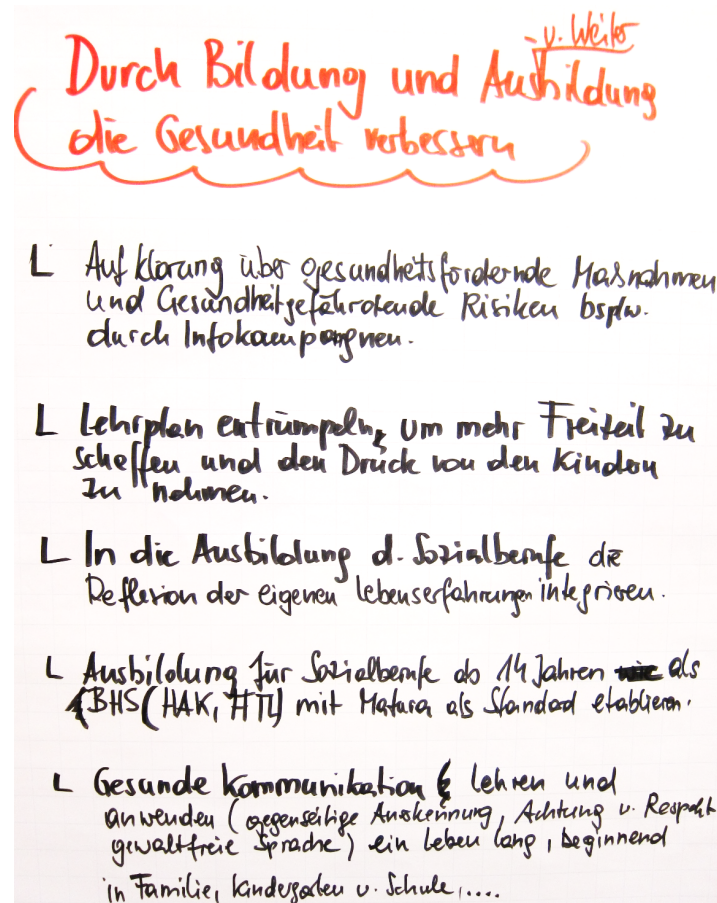 - u. Weiter
Durch Bildung und Ausbildung
die Gesundheit verbessern
L Aufklärung über gesundheitsfördernde Maßnahmen
und Gesundheitgefährdende Risiken bspw.
durch Infokampagnen.
L Lehrplan entrümpeln, um mehr Freizeit zu
schaffen und den Druck von den Kindern
zu nehmen.
L In die Ausbildung d. Sozialberufe die
Reflexion der eigenen Lebenserfahrungen integrieren.
L Ausbildung für Sozialberufe ab 14 Jahren als
(BHS (HAK, HTL) mit Matura als Standard etablieren.
L Gesunde Kommunikation lehren und
anwenden (gegenseitige Anerkennung, Achtung u. Respekt
gewaltfreie Sprache) ein Leben lang, beginnend
in Familie, Kindergarten u. Schule,....